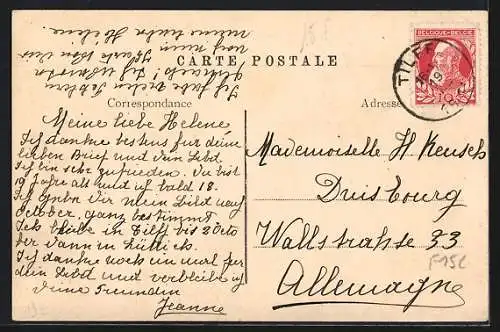 CARTE POSTALE
Correspondance
Adresse
BELGIQUE-BELGIË
10
TILFF
19
Meine liebe Helene
Ich danke bestens für deine
lieben Brief und dein Bild.
Ich bin sehr zufrieden. Du bist
19 Jahre alt und ich bald 18.
Ich gebe Dir mein Bild auf
October, ganz bestimmt
Ich bleibe in Tilff bis 3 Octo
ber dann in Lüttich.
Ich danke noch ein mal für
dein Bild und verbleibe ich
deine Freundin
Jeanne
Ich habe
meine liebe Helene.
Mademoiselle H. Keusch
Duisbourg
Wallstrahsse 33
Allemagne
F15E